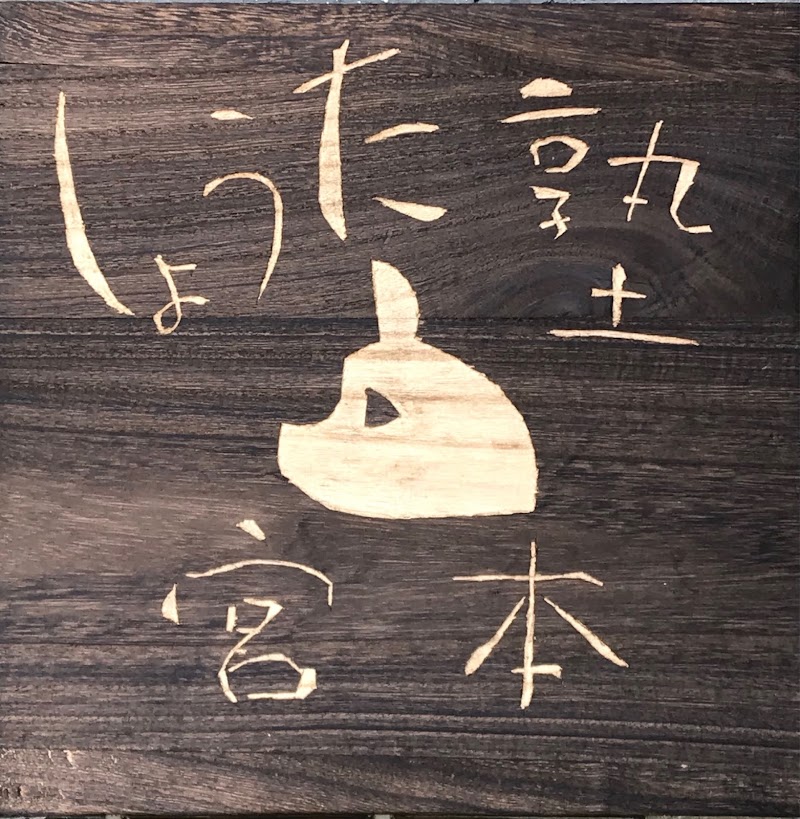 しょうた塾
宮本